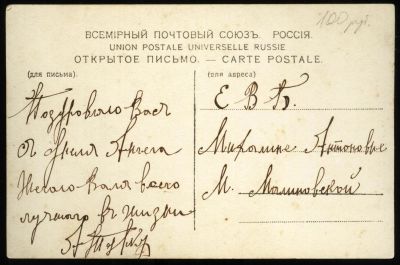 100 руб.
ВСЕМІРНЫЙ ПОЧТОВЫЙ СОЮЗЪ. РОССІЯ.
UNION POSTALE UNIVERSELLE RUSSIE
ОТКРЫТОЕ ПИСЬМО. — CARTE POSTALE.
(для письма).
Поздровляю Васъ
съ Днемъ Ангела
Желаю Вамъ всего
лучшаго въ жизни
(для адреса)
Е В Б.
Михалине Антоновне
М. Малиновской